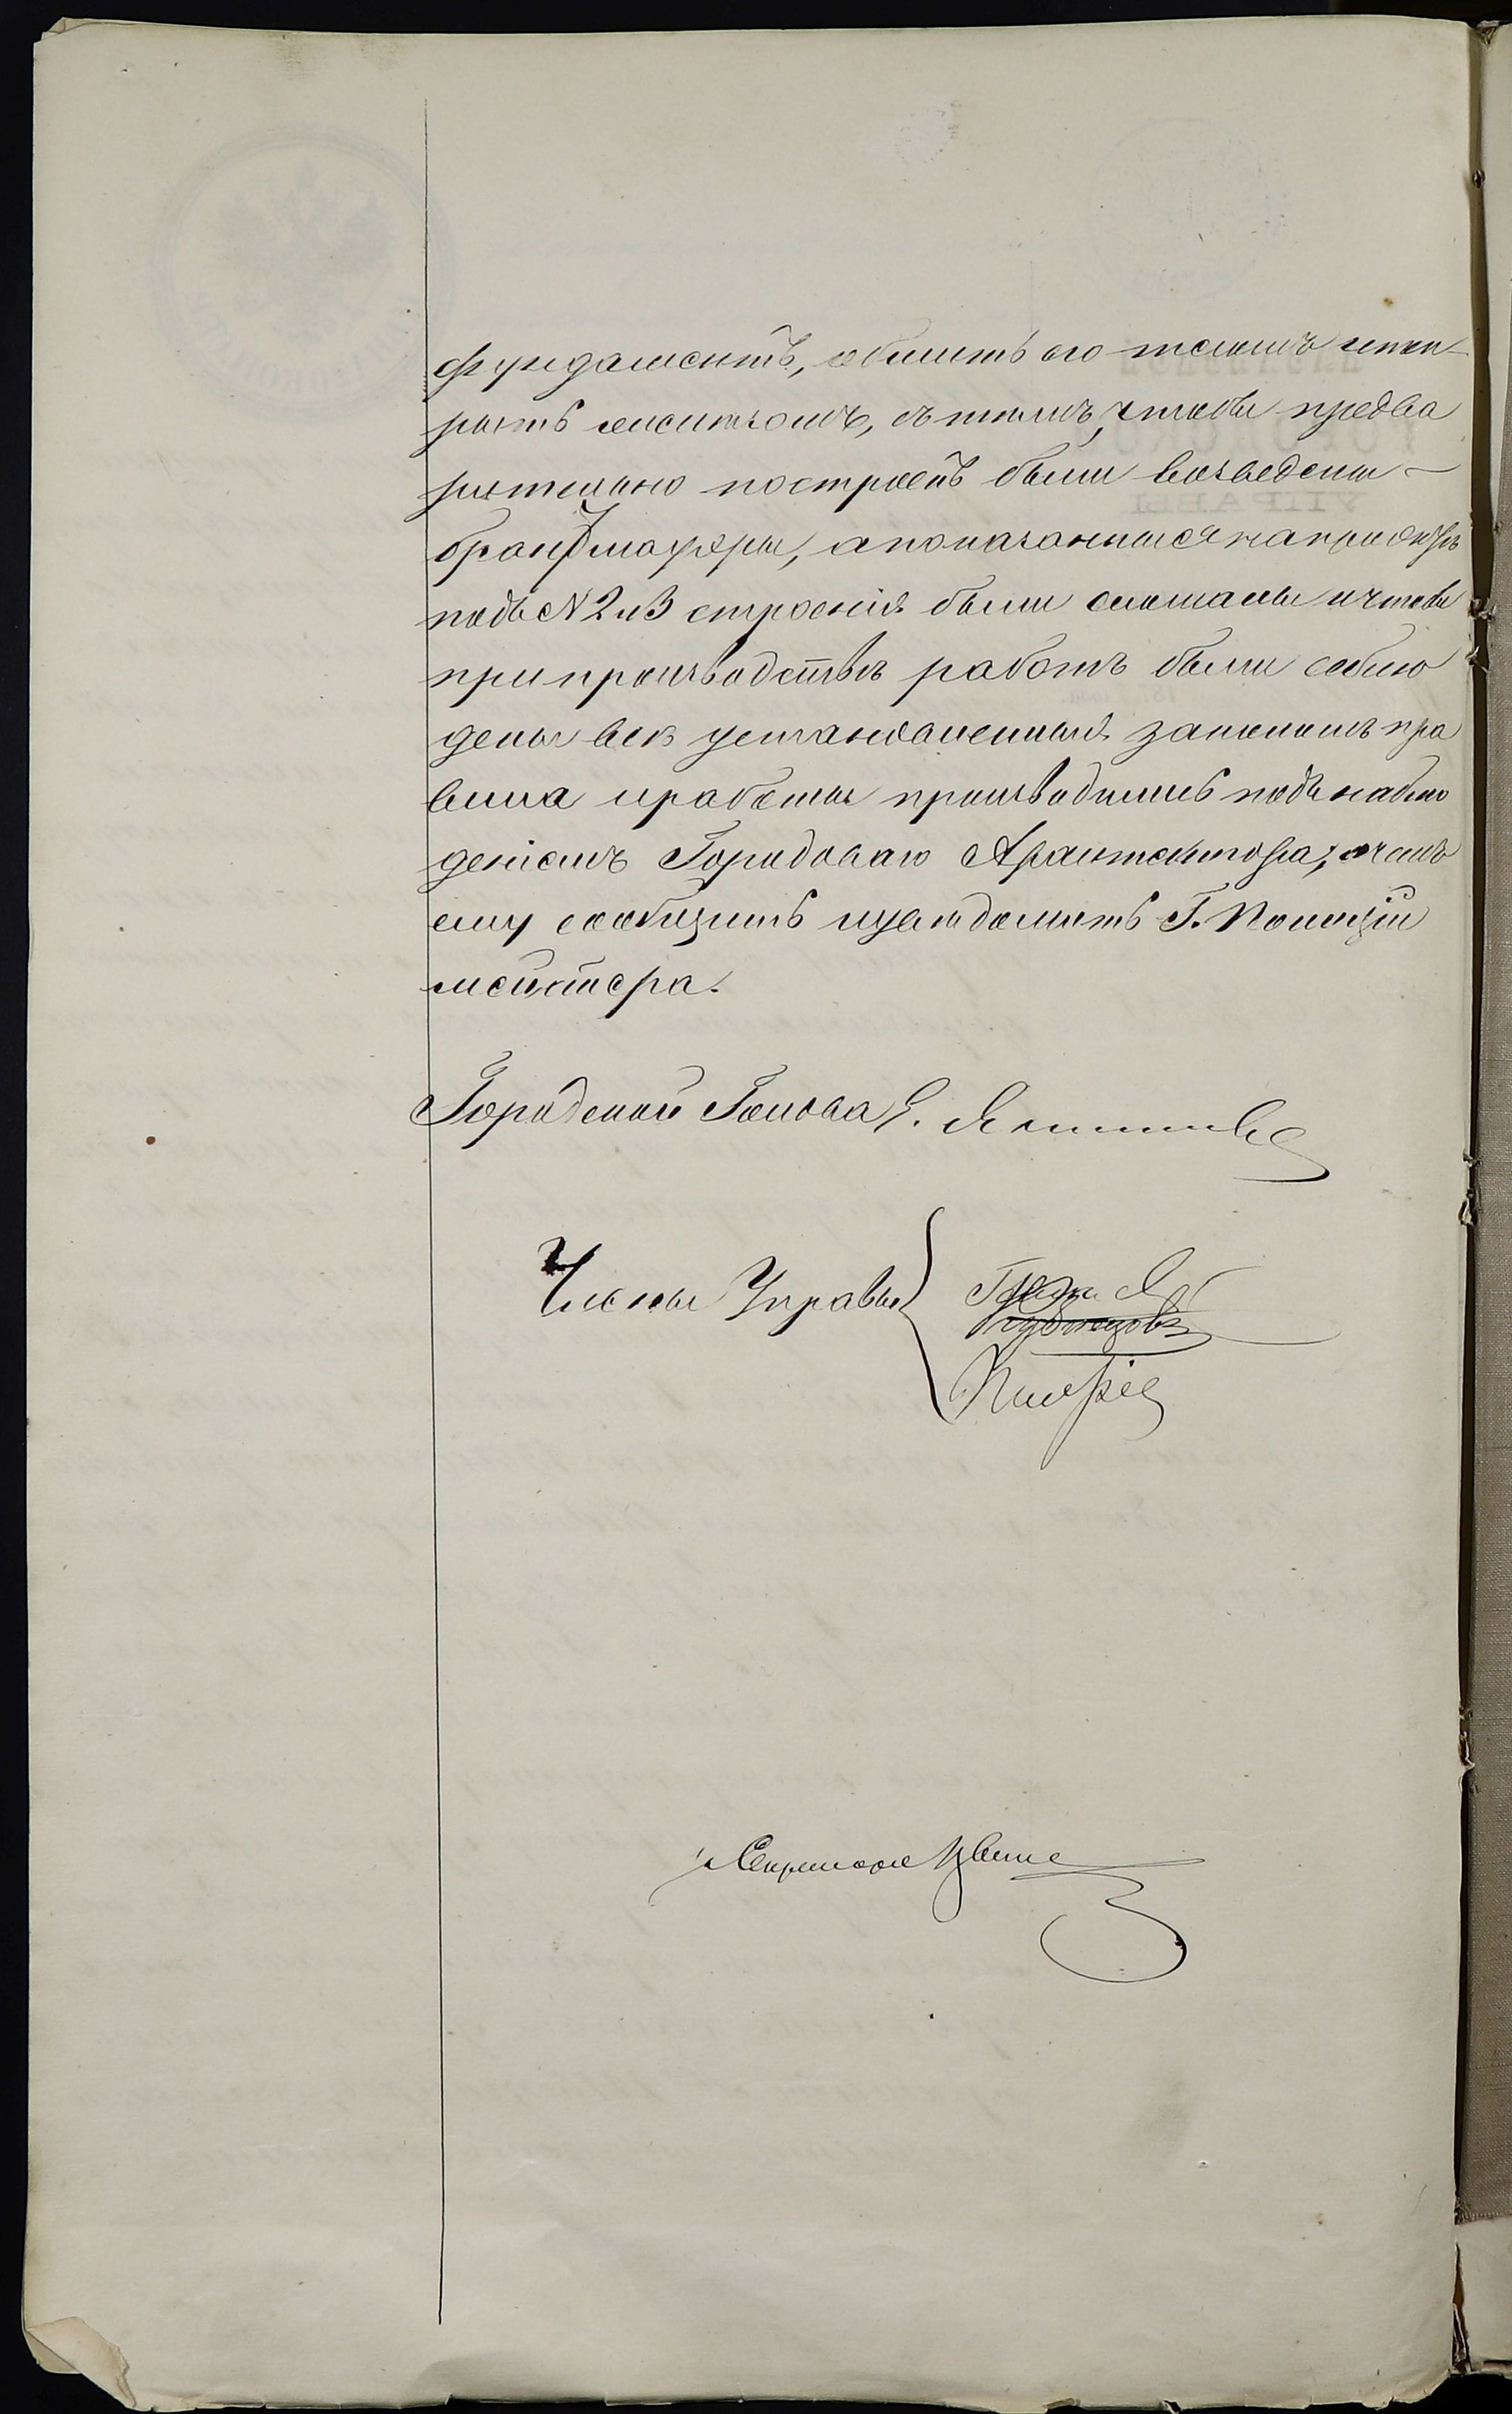 фундаментъ, обшить его тесомъ и пок-
рыть желѣзомъ, съ тѣмъ, чтобы предва
рительно построекъ были возведены
брандмауеры, а показанныя на проектѣ
подъ № 2 и 3 строенія были сломаны и чтобы
при производствѣ работъ были соблю
дены всѣ установленныя закономъ пра
вила и работы производились подъ наблю
деніемъ Городоваго Архитектора, о чемъ
ему сообщить и увѣдомить Г. Полиціи
мейстера.
Городской Голова
Члены Управы
Секретарь